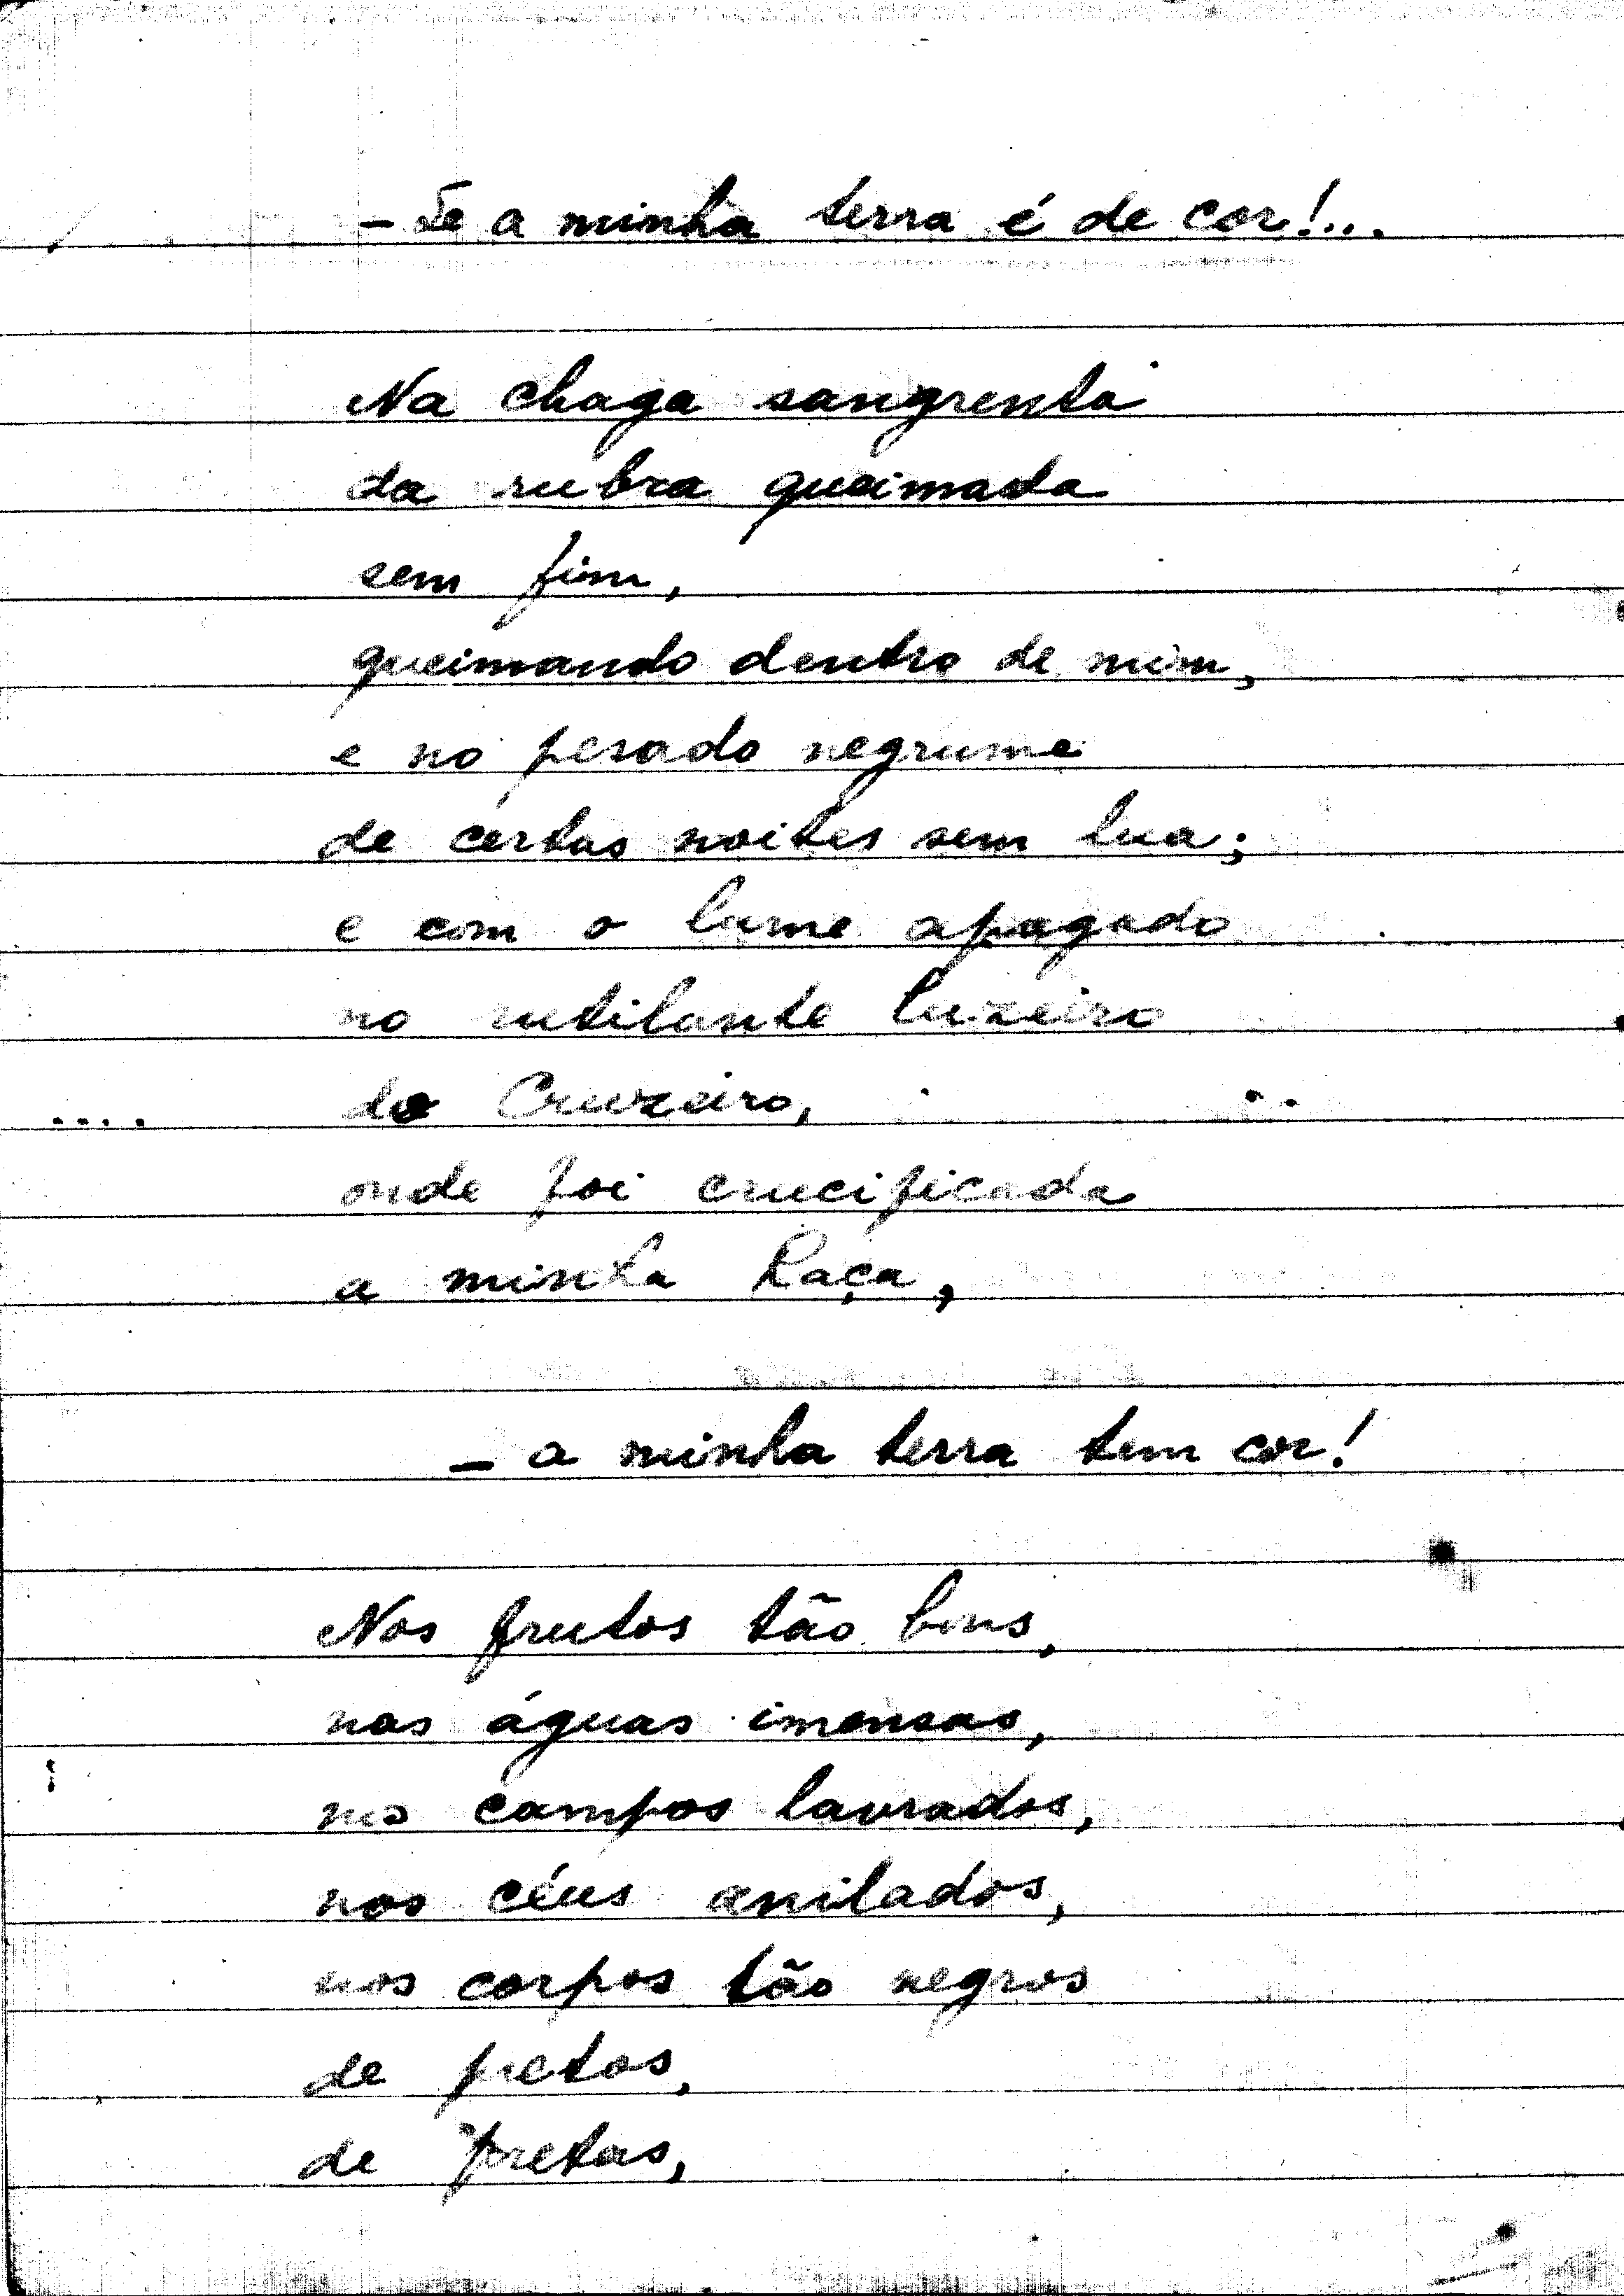 - Se a minha terra é de cor!...
Na chaga sangrenta
da rubra queimada
sem fim,
queimando dentro de mim,
e no pesado negrume
de certas noites sem lua;
e com o lume apagado
no rutilante luzeiro
do Cruzeiro,
onde foi crucificada
a minha Raça,
- a minha terra tem cor!
Nos frutos tão bons,
nas águas imensas,
nos campos lavrados,
nos céus anilados,
nos corpos tão negros
de pretos,
de pretas,